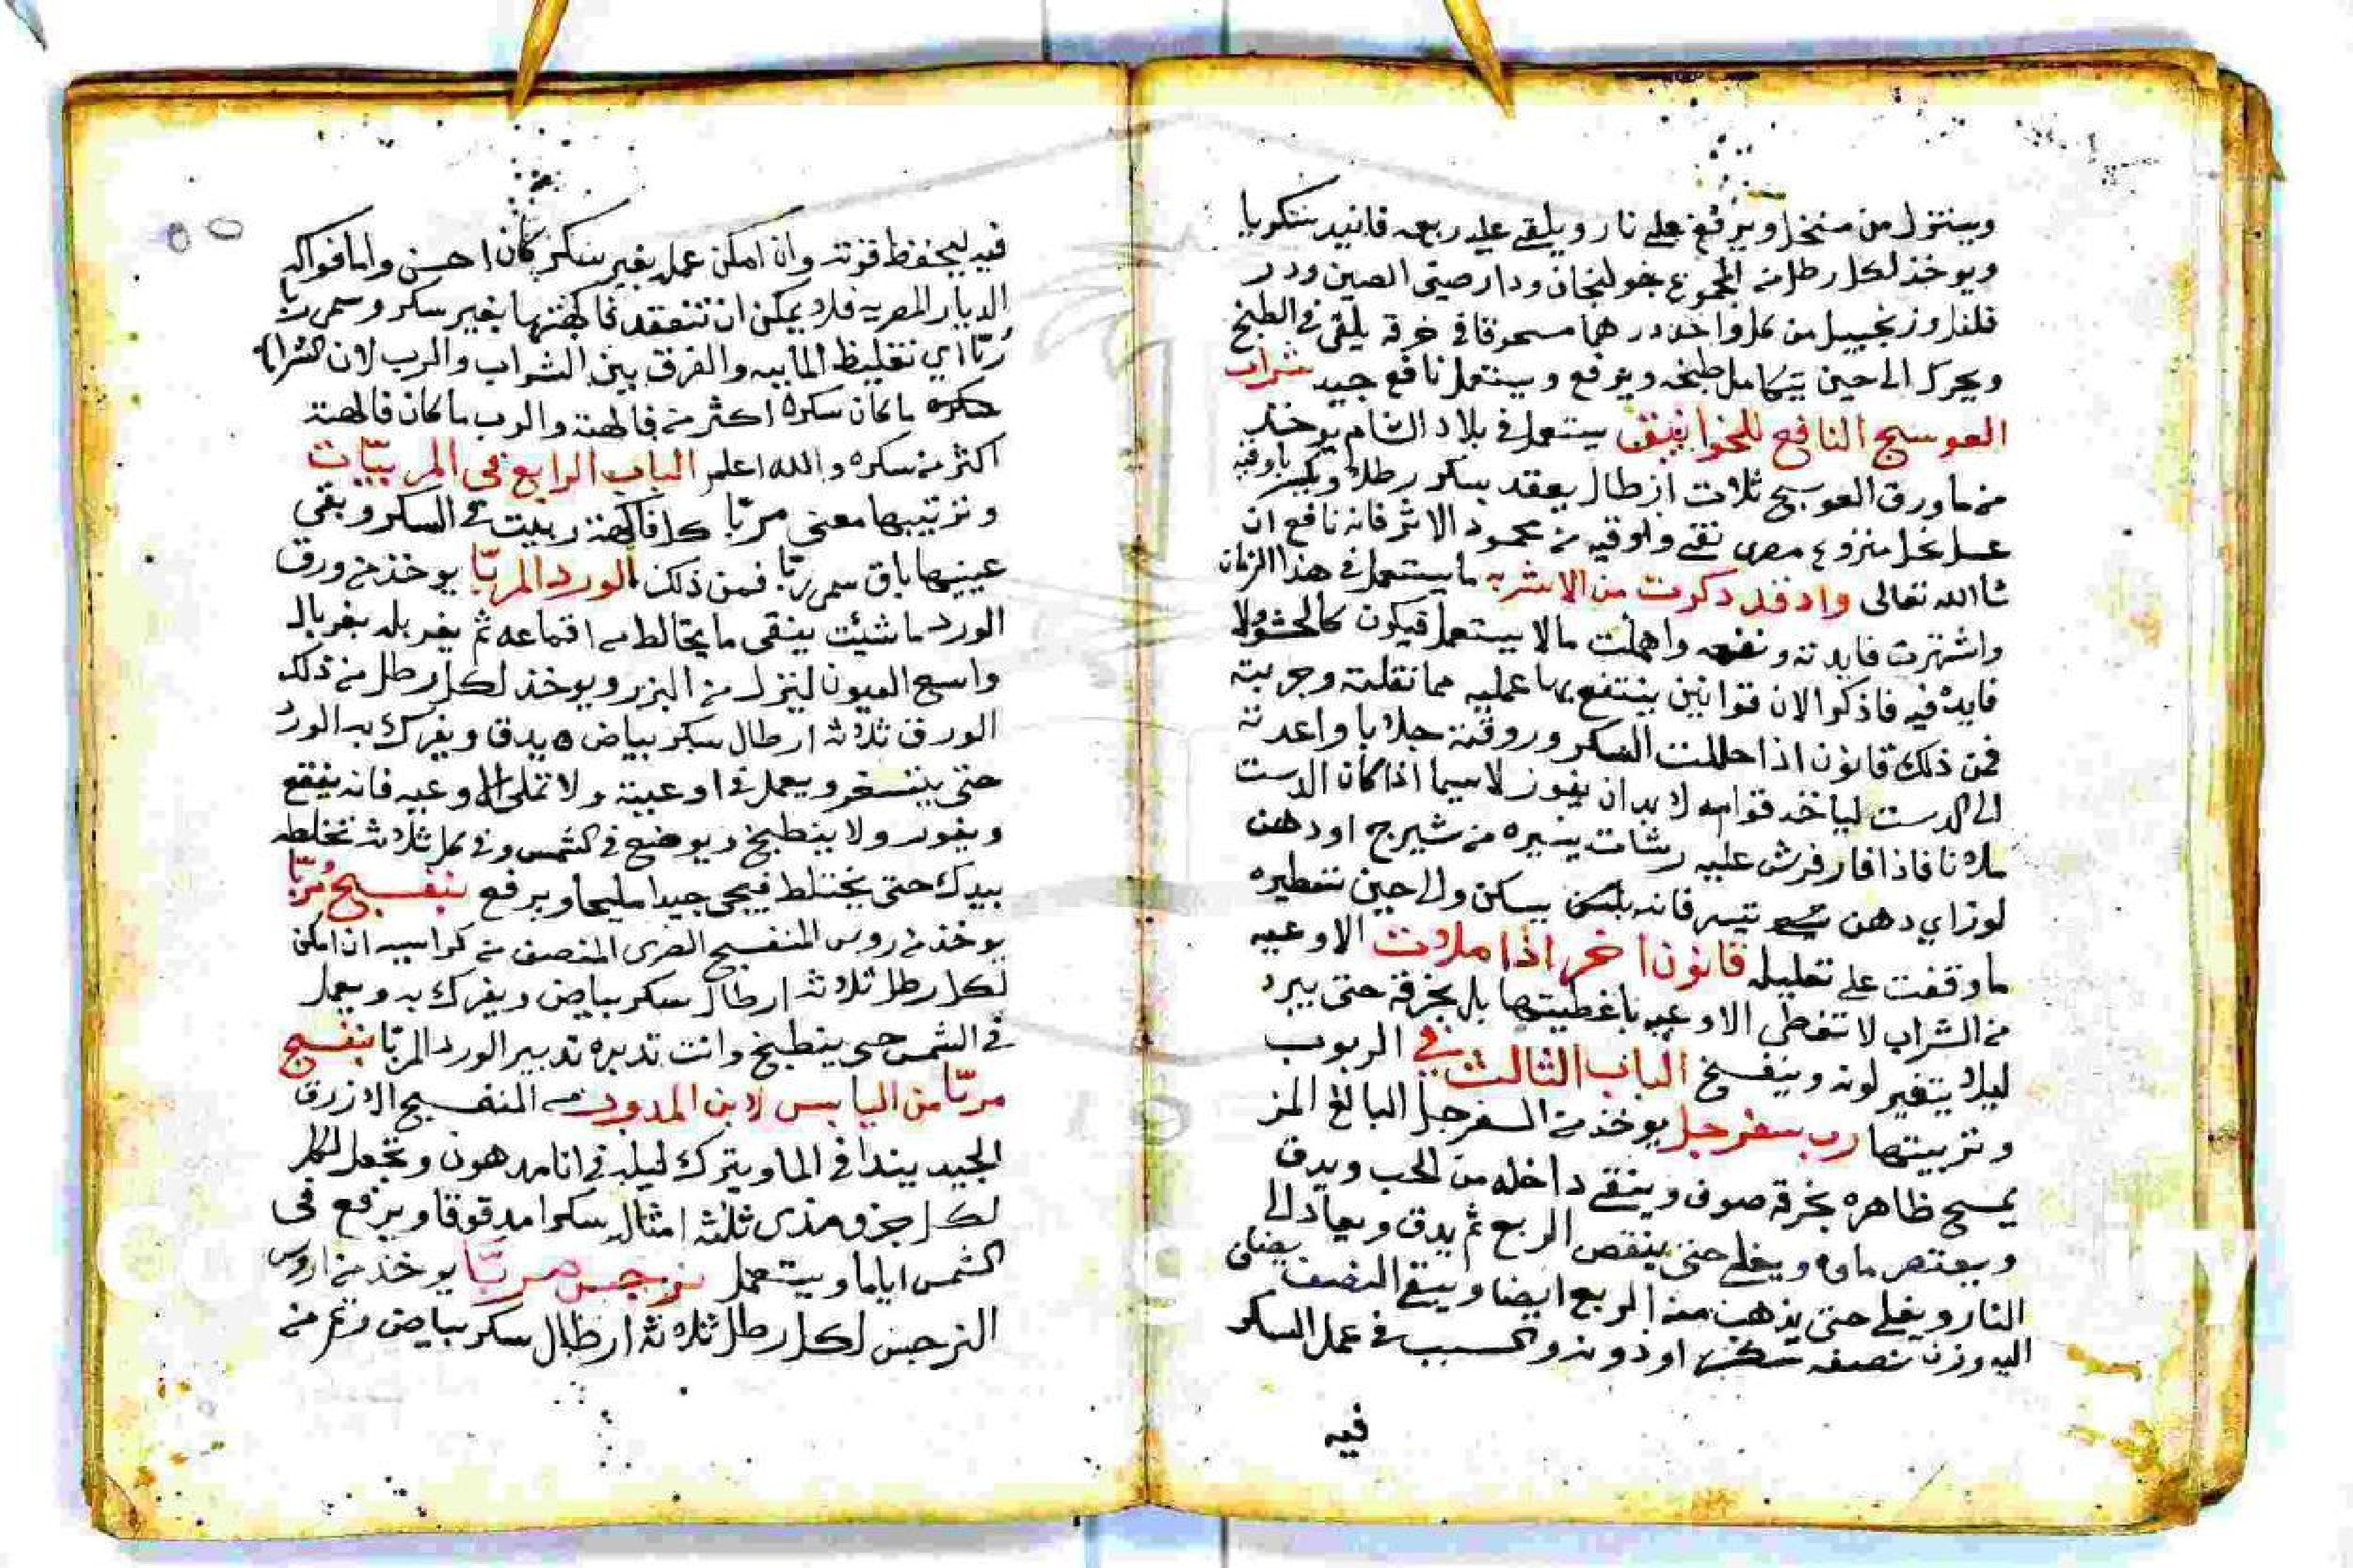 وينزل من منخل ويرفع على نار ويلقى عليه ربعه فانيد سنكر يا
ويوخذ لكل رطل من المجموع خولنجان ودارصيني الصين ودر
فلفل وزنجبيل من كل واحد درهما مسحوقا في خرقه يلقى في الطبخ
ويحرك الى حين يتكامل طبخه ويرفع ويستعمل نافع جيد شراب
العوسج النافع للخوانيق يستعمل في بلاد الشام يوخذ
من ما ورق العوسج ثلاث ارطال يعقد بسكر رطل باوقيه
عسل نحل منزوع مصرى نقى واوقيه من محمود الاثر فانه نافع ان
شا الله تعالى واد قد دكرت من الاشربه ما يستعمل في هذا الزمان
واشتهرت فايدته ونفعه واهملت مالا يستعمل فيكون كالحشو لا
فايدة فيه فاذكر الان قوانين ينتفع بها عمليه مما نقلته وجربته
فمن ذلك قانون اذا حللت السكر وروقته جلابا واعدته
الى الدست لياخذ قوامه لا بد ان يفور لا سيما اذا كان الدست
ملانا فاذا فار فرش عليه رشات يسيره من شيرج او دهن
لوز اي دهن تيسر فانه يسكن والى حين تسطيره
ما وقفت على تعليله قانون اخر اذا ملات الاوعيه
من الشراب لا تغطى الاوعيه باغطيتها بل بخرقه حتى يبرد
ليلا يتغير لونه وينفسخ الباب الثالث في الربوب
وتربيتها رب سفرجل يوخذ من السفرجل البالغ المز
يمسح ظاهره بخرقة صوف وينقى داخله من الحب ويدق
ويعتصر ماوه ويغلى حتى ينقص الربع ثم يدق ويعاد الى
النار ويغلى حتى يذهب منه الربع ايضا ويبقى النصف يضاف
اليه وزن نصفه سكر او دونه والسبب في عمل السكر
فيه
فيه ليحفظ قوته وان امكن عمله بغير سكر كان احسن واما فواكه
الديار المصريه فلا يمكن ان تنعقد فاكهتها بغير سكر وسمى ربا
ربا اي تغليظ المائيه والفرق بين الشراب والرب لان الشراب
ما كان سكره اكثر من فاكهته والرب ما كان فاكهته
اكثر من سكره والله اعلم الباب الرابع في المربيات
وتربيبها معنى مربا كل فاكهة ربيت في السكر وبقى
عينها باق سمى ربا فمن ذلك الورد المربا يوخذ من ورق
الورد ما شئت ينقى ما يخالطه من اقماعه ثم يغربله بغربال
واسع العيون لينزل من البزر ويوخذ لكل رطل من ذلك
الورق ثلاثة ارطال سكر بياض يدق ويفرك به الورد
حتى ويعمل في اوعيته ولا تملى الاوعيه فانه ينقع
ويفور ولا ينطبخ ويوضع في الشمس وفي كل ثلاثة تخلطه
بيدك حتى يختلط فيجى جيدا مليحا ويرفع بنفسج مربا
يوخذ من روس البنفسج الطرى المنصف من كراسيه ان امكن
لكل رطل ثلاثة ارطال سكر بياض ويفرك به ويعمل
في الشمس حتى ينطبخ وانت تدبره تدبير الورد المربا بنفسج
مربا من اليابس لابن المدود من المنفسج الازرق
الجيد يندا في الما ويترك ليله في انا مدهون وتجعل لكل
لكل جزو مندى ثلثة امثال سكرا مدقوقا ويرفع فى
الشمس اياما ويستعمل نرجس مربا يوخذ من اروس
النرجس لكل رطل ثلاثة ارطال سكر بياض